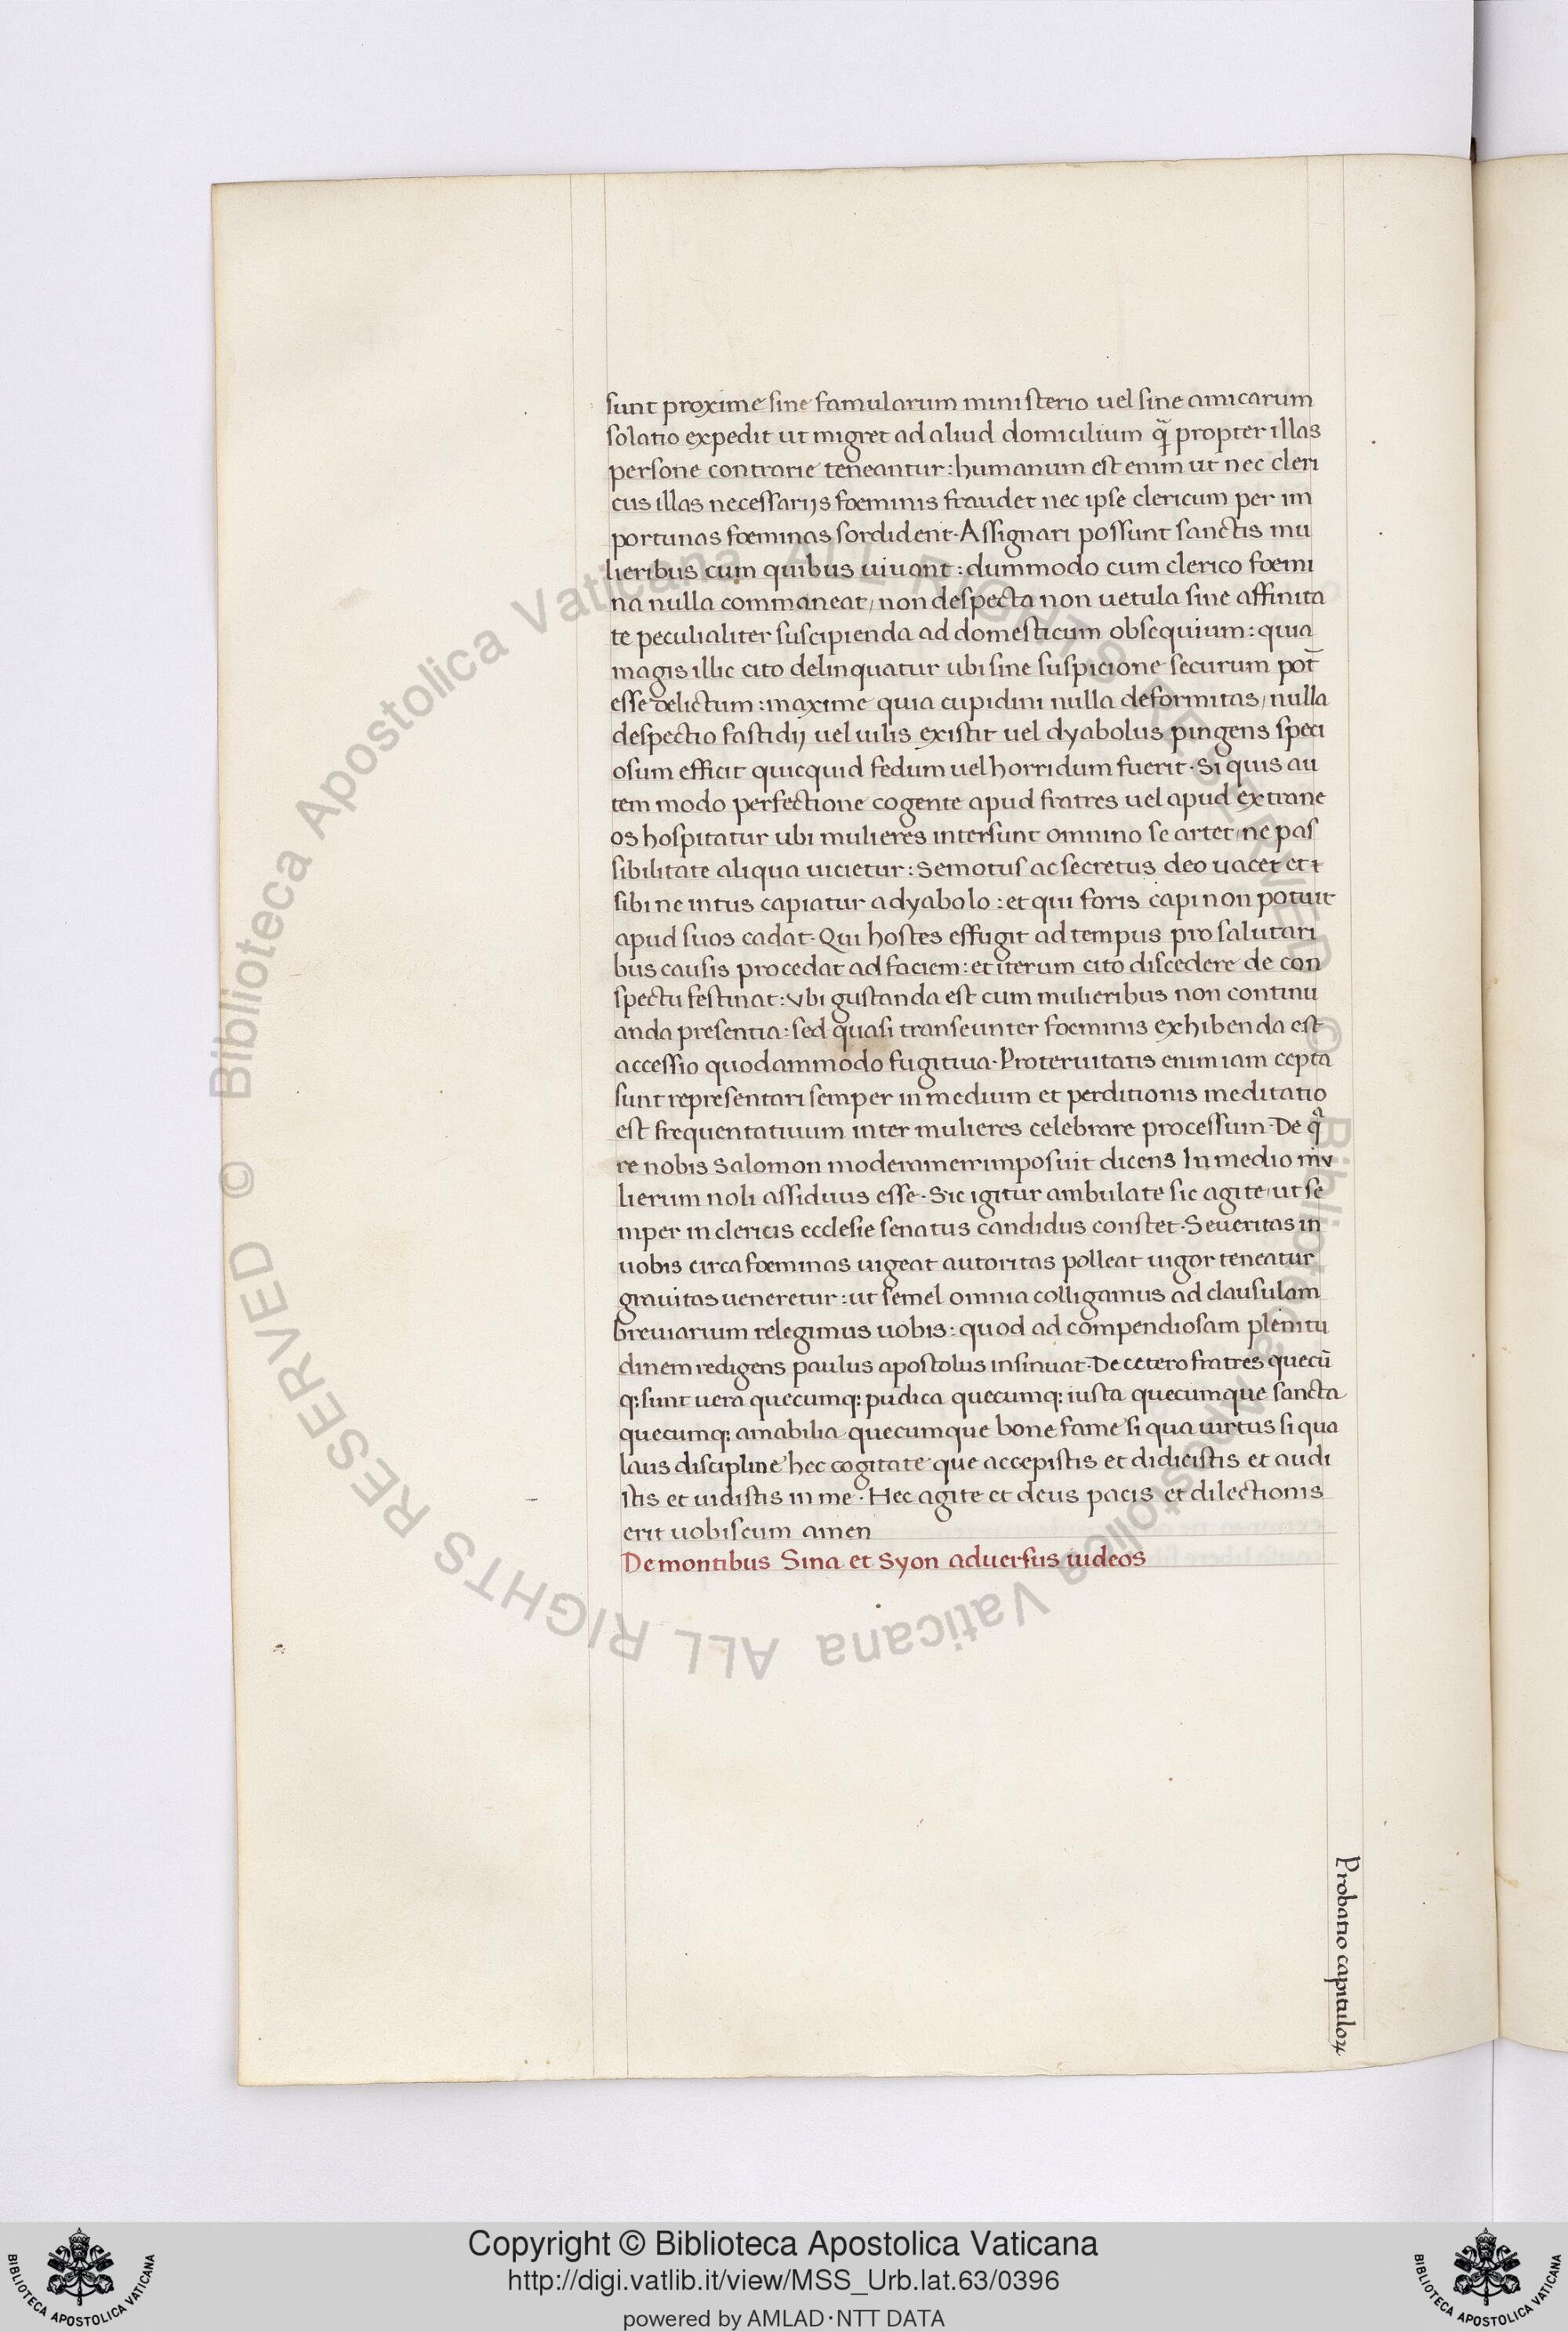 sunt proxime sine famularum ministerio uel sine amicarum
solatio expedit ut migret ad aliud domicilium q̃ propter illas
persone contrarie teneantur: humanum est enim ut nec cleri
cus illas necessarijs foeminis fraudet nec ipse clericum per im
portunas foeminas sordident. Assignari possunt sanctis mu
lieribus cum quibus uiuant: dummodo cum clerico foemi
na nulla commaneat, non despecta non uetula sine affinita
te peculialiter suscipienda ad domesticum obsequium: quia
magis illic cito delinquatur ubi sine suspicione securum pot̄
esse delictum: maxime quia cupidini nulla deformitas, nulla
despectio fastidij uel uilis existit uel dyabolus pingens speci
osum efficit quicquid fedum uel horridum fuerit. Si quis au
tem modo perfectione cogente apud fratres uel apud extrane
os hospitatur ubi mulieres intersunt omnino se artet, ne pas
sibilitate aliqua uicietur: Semotus ac secretus deo uacet et
sibi ne intus capiatur a dyabolo: et qui foris capi non potuit
apud suos cadat. Qui hostes effugit ad tempus pro salutari
bus causis procedat ad faciem: et iterum cito discedere de con
spectu festinat: vbi gustanda est cum mulieribus non continu
anda presentia: sed quasi transeunter foeminis exhibenda est
accessio quodammodo fugitiua. Proteruitatis enim iam cepta
sunt representari semper in medium et perditionis meditatio
est frequentatiuum inter mulieres celebrare processum. De qᷓ
re nobis Salomon moderamen imposuit dicens In medio mv
lierum noli assiduus esse. Sic igitur ambulate sic agite, ut se
mper in clericis ecclesie senatus candidus constet. Seueritas in
uobis circa foeminas uigeat autoritas polleat uigor teneatur
grauitas ueneretur: ut semel omnia colligamus ad clausulam
breuiarium relegimus uobis: quod ad compendiosam plenitu
dinem redigens paulus apostolus insinuat. De cetero fratres quecū
q; sunt uera quecumq; pudica quecumq; iusta quecumque sancta
quecumq; amabilia quecumque bone fame si qua uirtus si qua
laus discipline hec cogitate que accepistis et didicistis et audi
istis et uidistis in me. Hec agite et deus pacis et dilectionis
erit uobiscum amen
De montibus Sina et Syon aduersus iudeos
Probatio capituloꝝ
© Biblioteca Apostolica Vaticana ALL RIGHTS RESERVED © Biblioteca Apostolica Vaticana ALL RIGHTS RESERVED
Copyright © Biblioteca Apostolica Vaticana
http://digi.vatlib.it/view/MSS_Urb.lat.63/0396
powered by AMLAD·NTT DATA
BIBLIOTECA APOSTOLICA VATICANA
BIBLIOTECA APOSTOLICA VATICANA